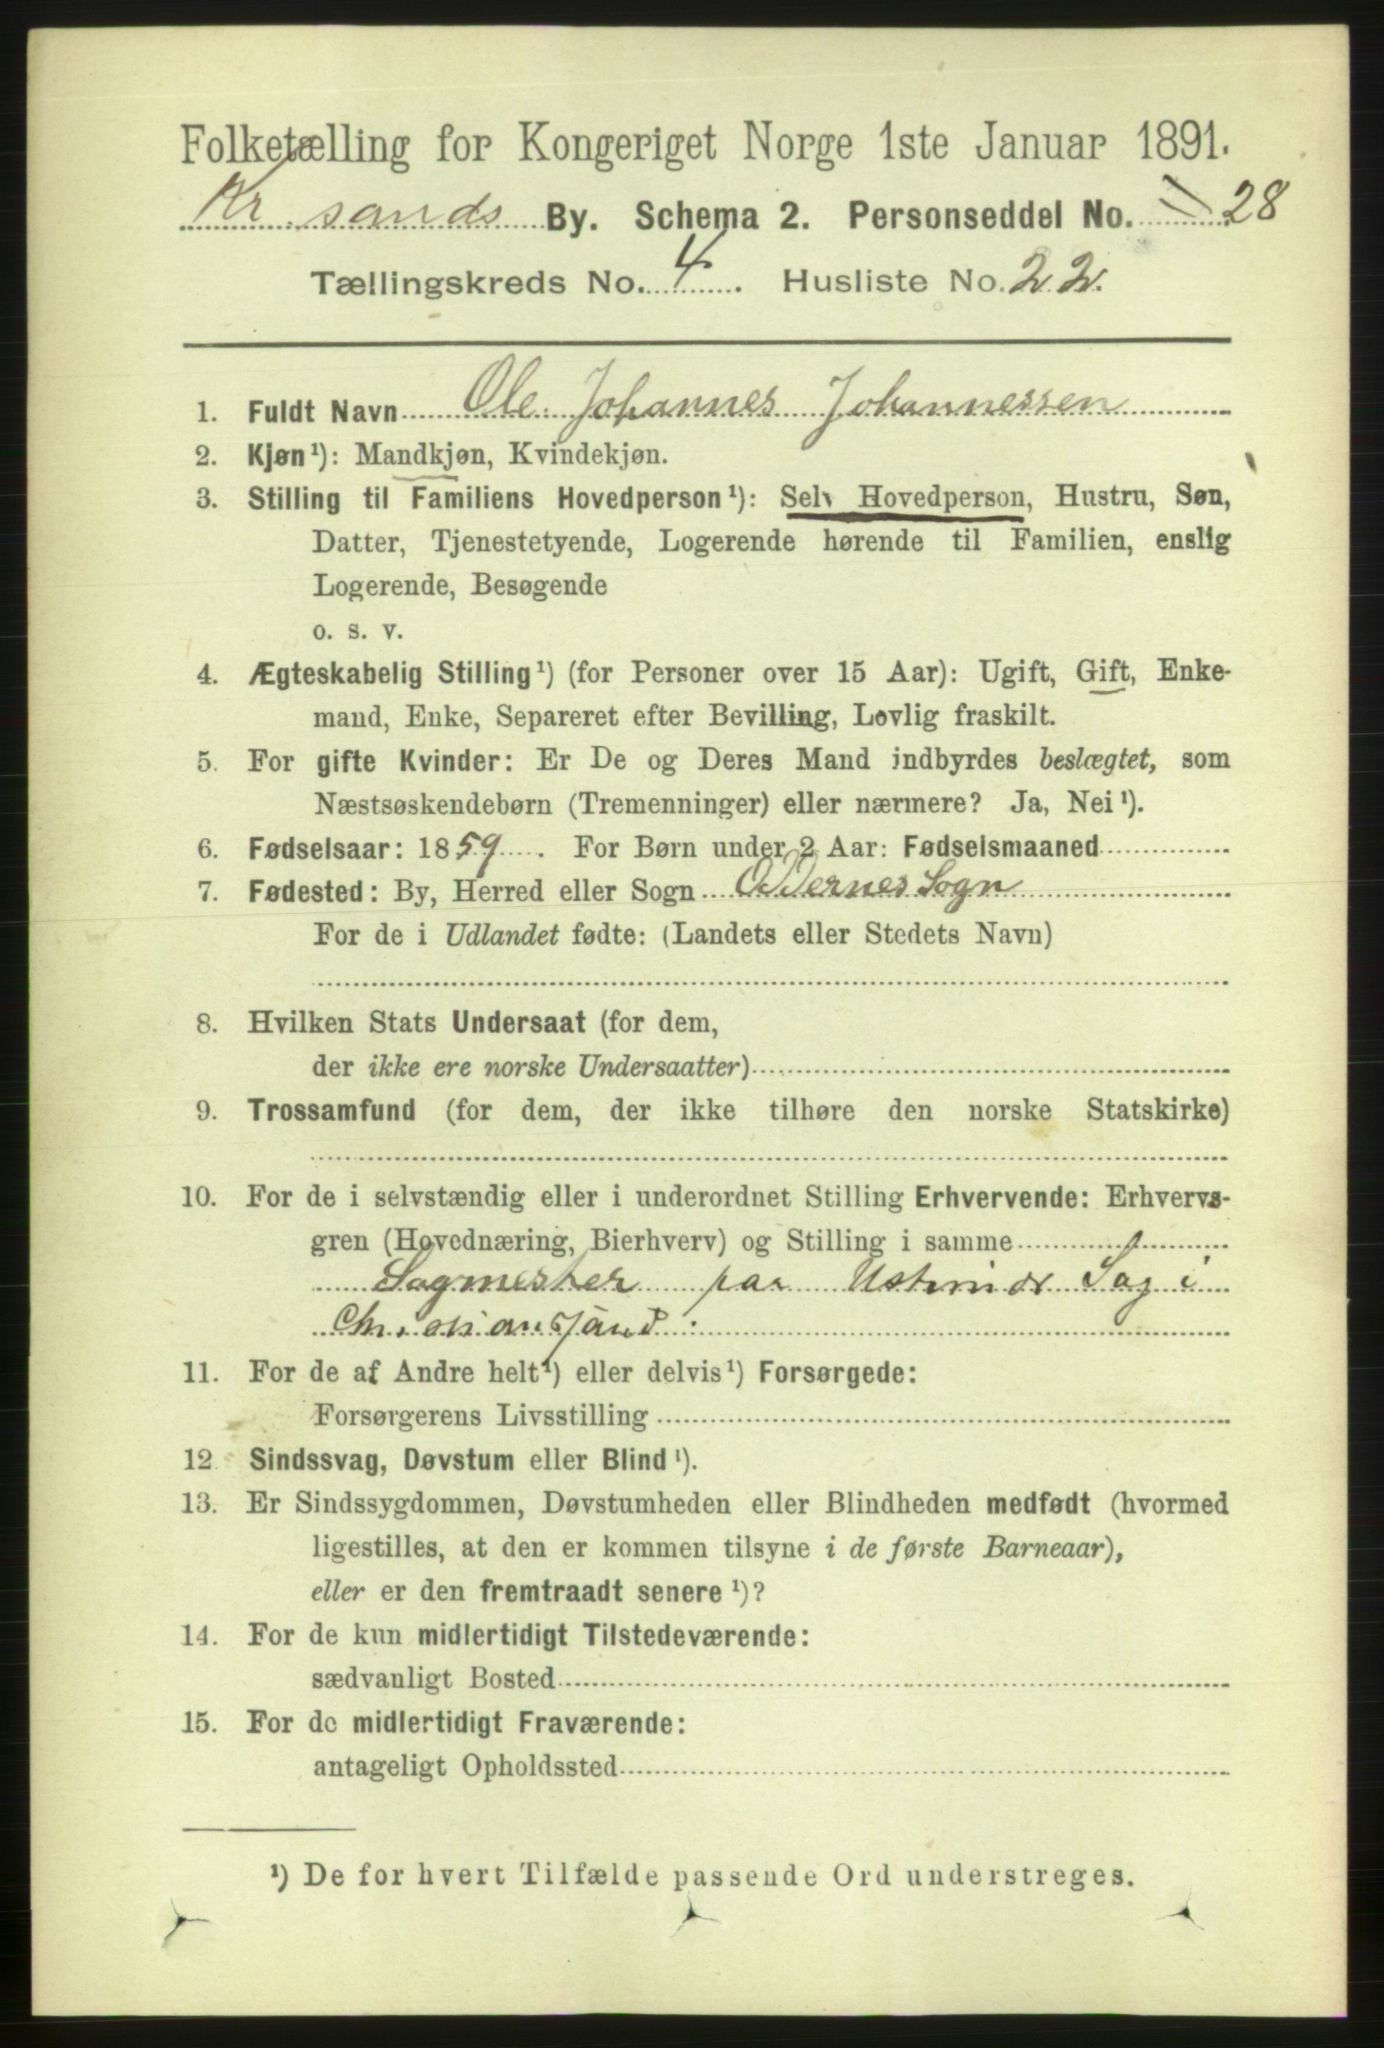 Folketælling for Kongeriget Norge 1ste Januar 1891.
Kr.sands By. Schema 2. Personseddel No. 28
Tællingskreds No. 4. Husliste No. 22.
1. Fuldt Navn Ole Johannes Johannessen
2. Kjøn¹): Mandkjøn, Kvindekjøn.
3. Stilling til Familiens Hovedperson¹): Selv Hovedperson, Hustru, Søn,
Datter, Tjenestetyende, Logerende hørende til Familien, enslig
Logerende, Besøgende
o. s. v.
4. Ægteskabelig Stilling¹) (for Personer over 15 Aar): Ugift, Gift, Enke-
mand, Enke, Separeret efter Bevilling, Lovlig fraskilt.
5. For gifte Kvinder: Er De og Deres Mand indbyrdes beslægtet, som
Næstsøskendebørn (Tremenninger) eller nærmere? Ja, Nei¹).
6. Fødselsaar: 1859. For Børn under 2 Aar: Fødselsmaaned
7. Fødested: By, Herred eller Sogn Oddernes Sogn
For de i Udlandet fødte: (Landets eller Stedets Navn)
8. Hvilken Stats Undersaat (for dem,
der ikke ere norske Undersaatter)
9. Trossamfund (for dem, der ikke tilhøre den norske Statskirke)
10. For de i selvstændig eller i underordnet Stilling Erhvervende: Erhvervs-
gren (Hovednæring, Bierhverv) og Stilling i samme
Sagmester paa Sag i
Christianssand.
11. For de af Andre helt¹) eller delvis¹) Forsørgede:
Forsørgerens Livsstilling
12 Sindssvag, Døvstum eller Blind¹).
13. Er Sindssygdommen, Døvstumheden eller Blindheden medfødt (hvormed
ligestilles, at den er kommen tilsyne i de første Barneaar),
eller er den fremtraadt senere¹)?
14. For de kun midlertidigt Tilstedeværende:
sædvanligt Bosted
15. For de midlertidigt Fraværende:
antageligt Opholdssted
¹) De for hvert Tilfælde passende Ord understreges.